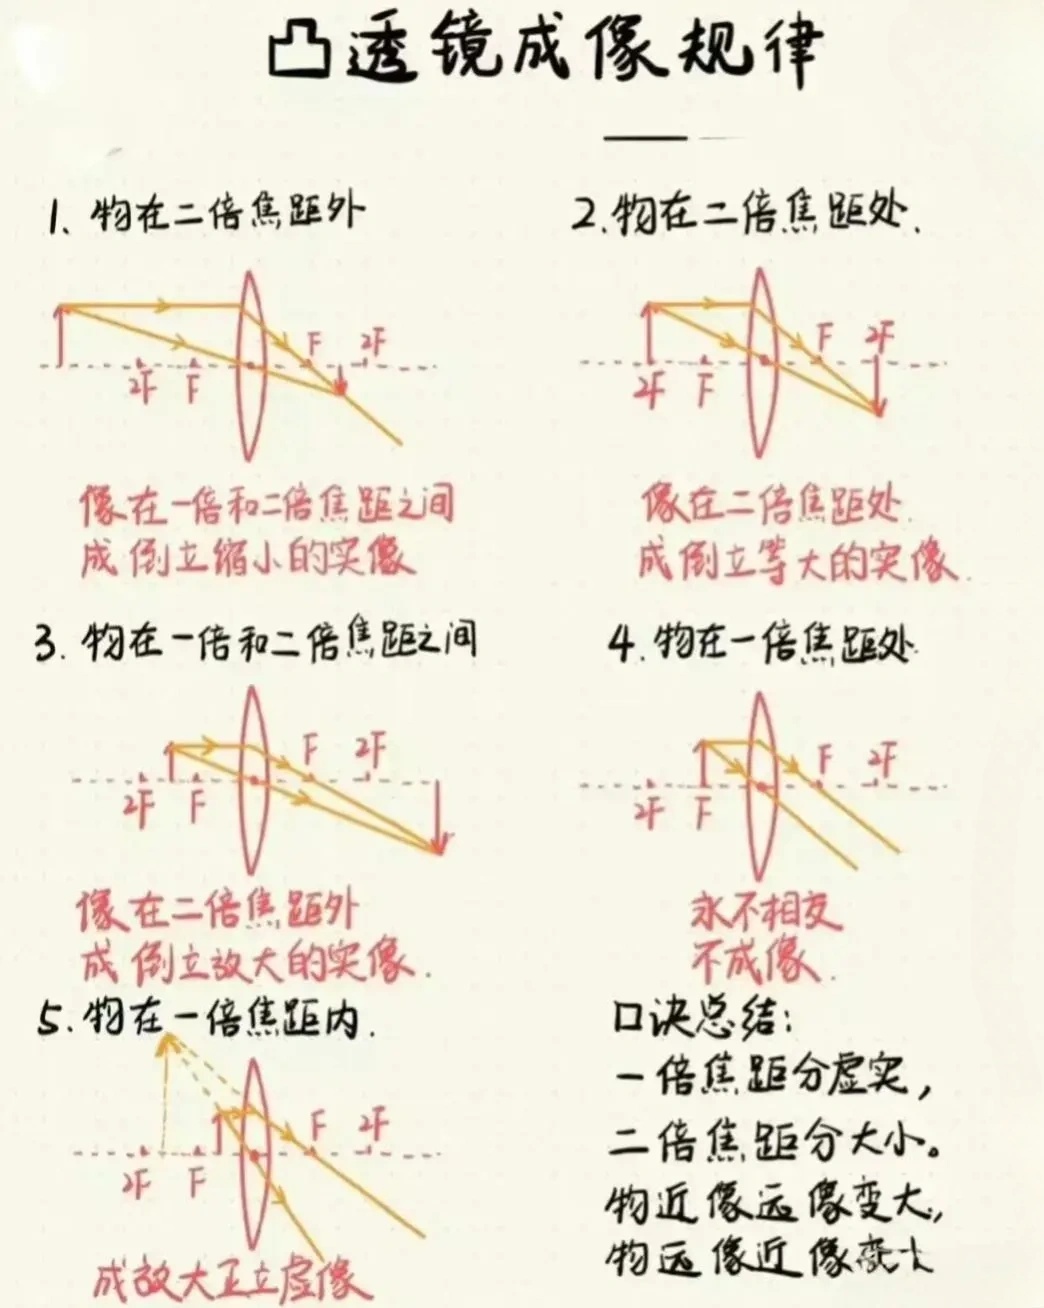 凸透镜成像规律
1、物在二倍焦距外
F 2F
2F F
像在一倍和二倍焦距之间
成倒立缩小的实像
2.物在二倍焦距处.
F 2F
2F F
像在二倍焦距处
成倒立等大的实像.
3.物在一倍和二倍焦距之间
F 2F
2F F
像在二倍焦距外
成倒立放大的实像.
4.物在一倍焦距处
F 2F
2F F
永不相交
不成像.
5.物在一倍焦距内.
F 2F
2F F
成放大正立虚像
口诀总结:
一倍焦距分虚实,
二倍焦距分大小。
物近像远像变大,
物远像近像变